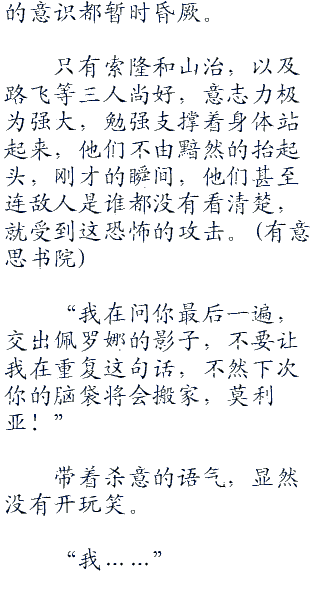 的意识都暂时昏厥。
只有索隆和山治，以及
路飞等三人尚好，意志力极
为强大，勉强支撑着身体站
起来，他们不由黯然的抬起
头，刚才的瞬间，他们甚至
连敌人是谁都没有看清楚，
就受到这恐怖的攻击。(有意
思书院)
“我在问你最后一遍，
交出佩罗娜的影子，不要让
我在重复这句话，不然下次
你的脑袋将会搬家，莫利
亚！”
带着杀意的语气，显然
没有开玩笑。
“我……”